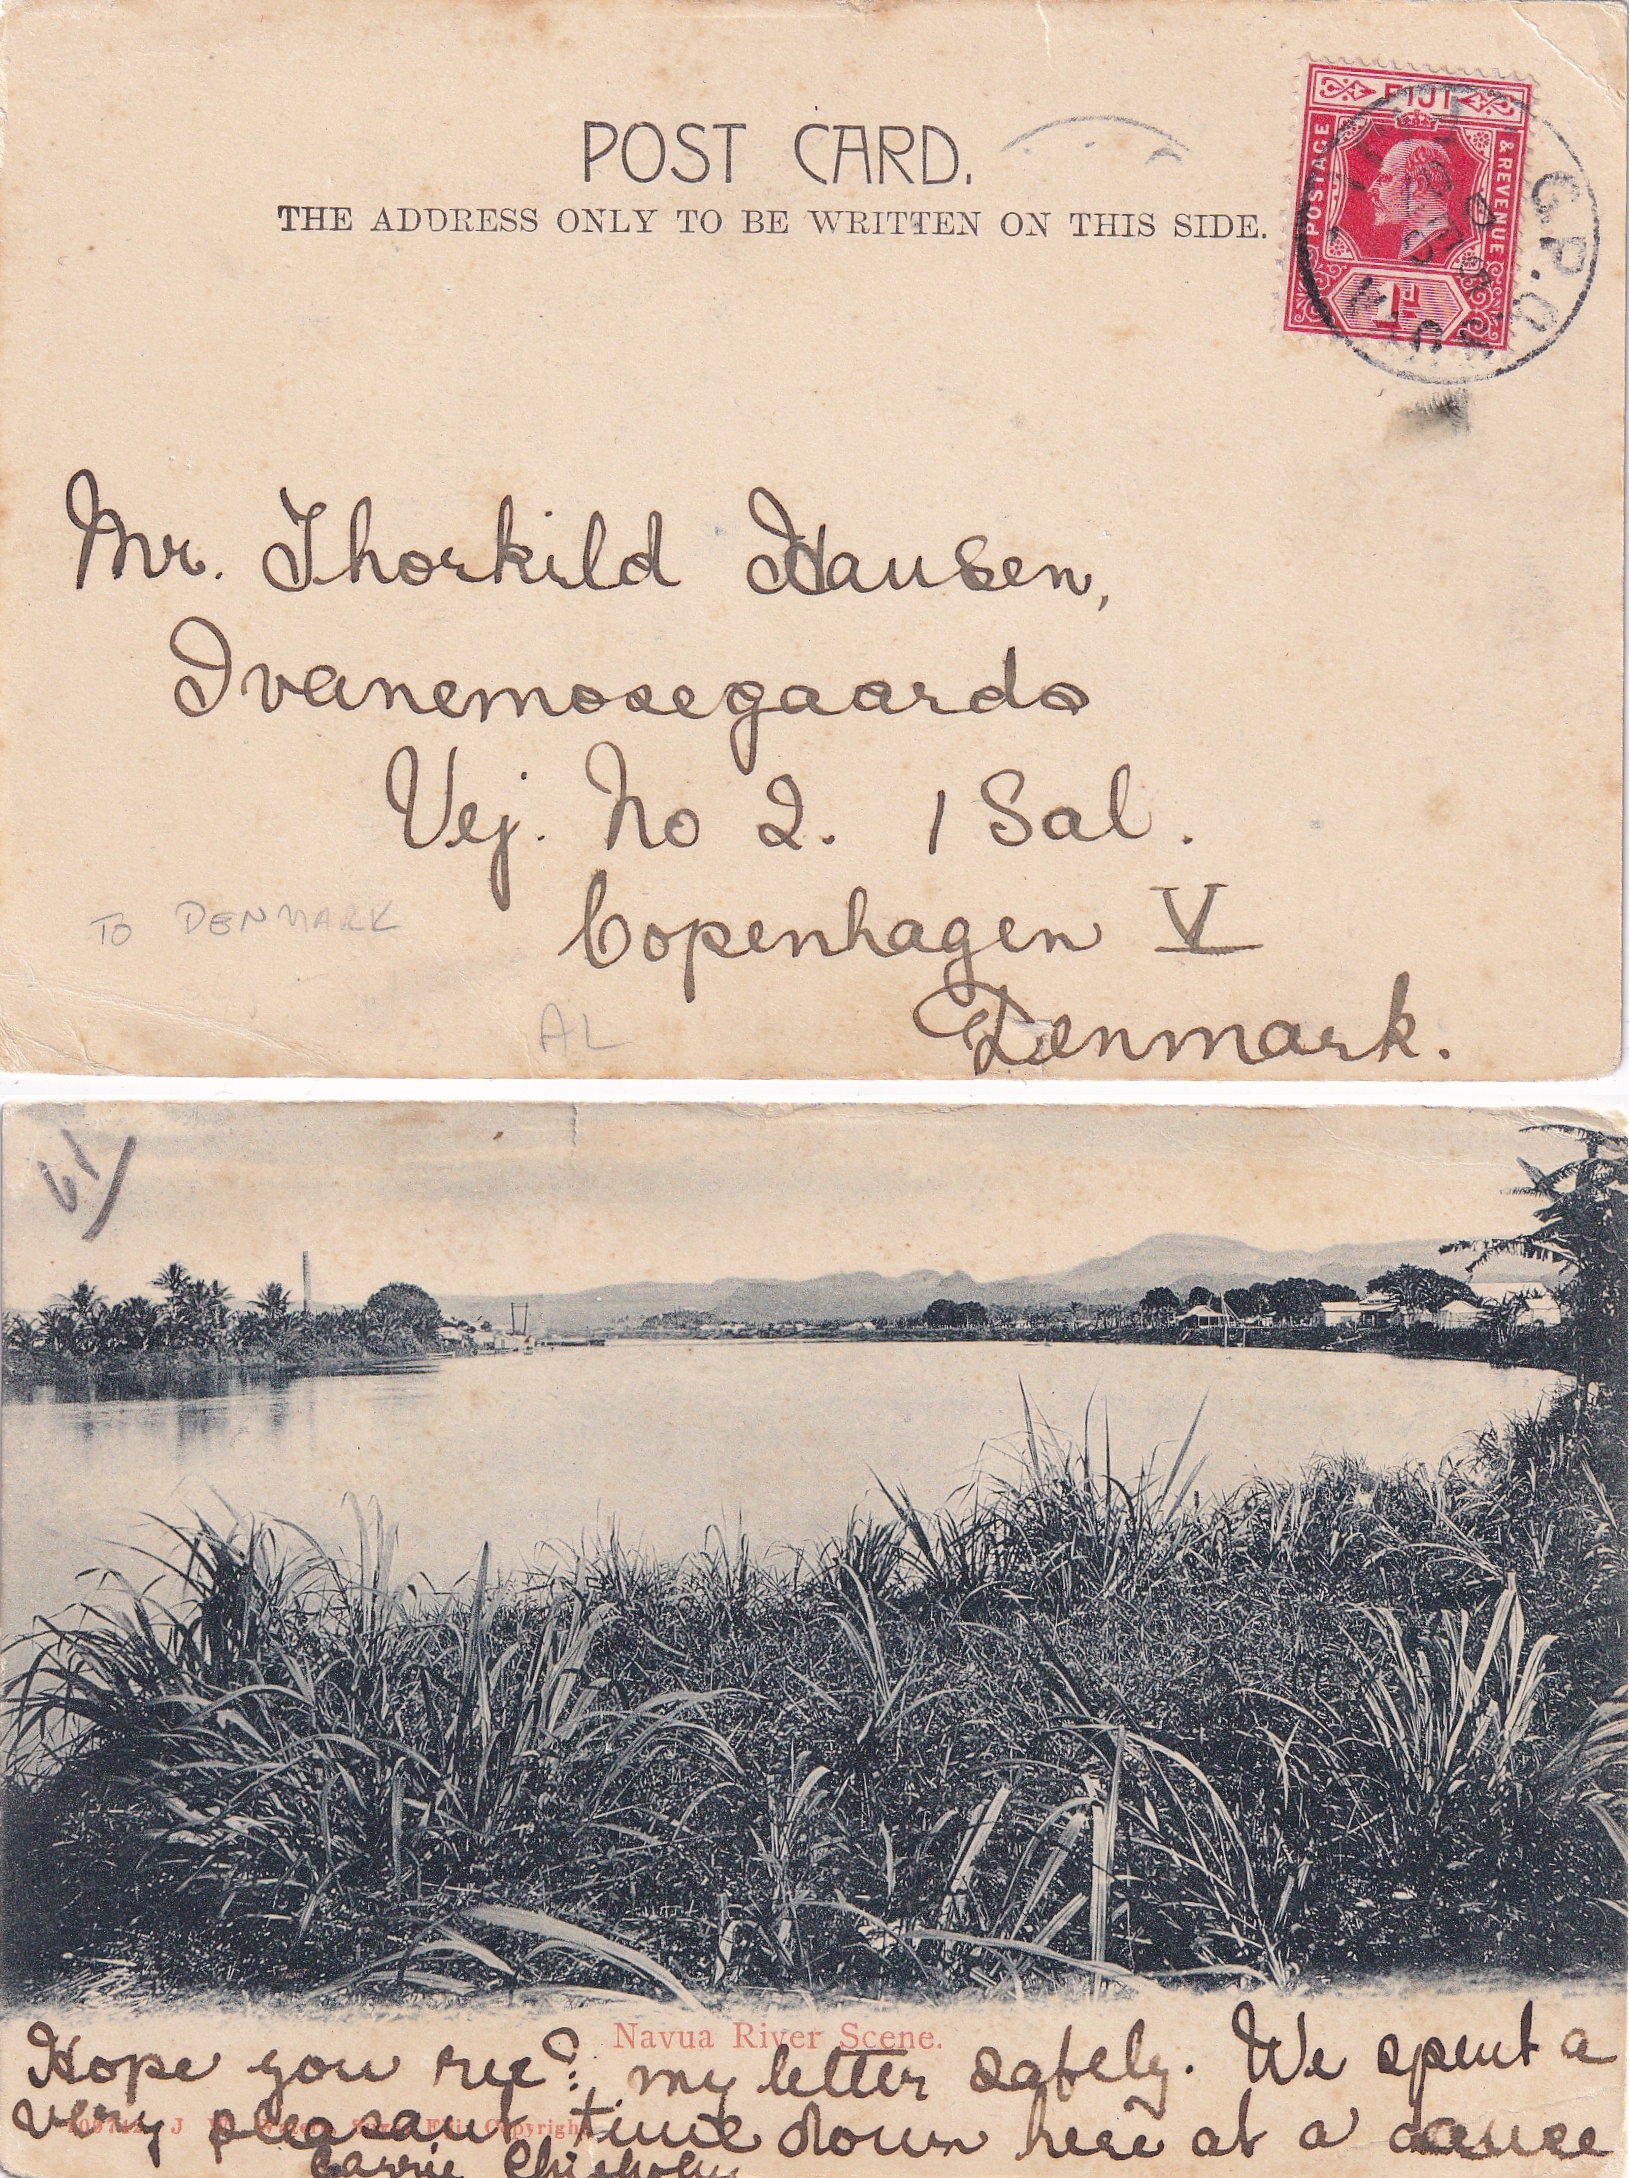 POST CARD.
THE ADDRESS ONLY TO BE WRITTEN ON THIS SIDE.
FIJI
POSTAGE & REVENUE
1d
G.P.O.
Mr. Thorkild Hansen,
Ivanemosegaards
Vej. No 2. 1 Sal.
Copenhagen V
Denmark.
TO DENMARK
AL
61
Navua River Scene.
Hope you rec'd: my letter safely. We spent a
very pleasant time down here at a dance
J. W. Waters, Suva, Fiji, Copyright.
Carrie Chisholm